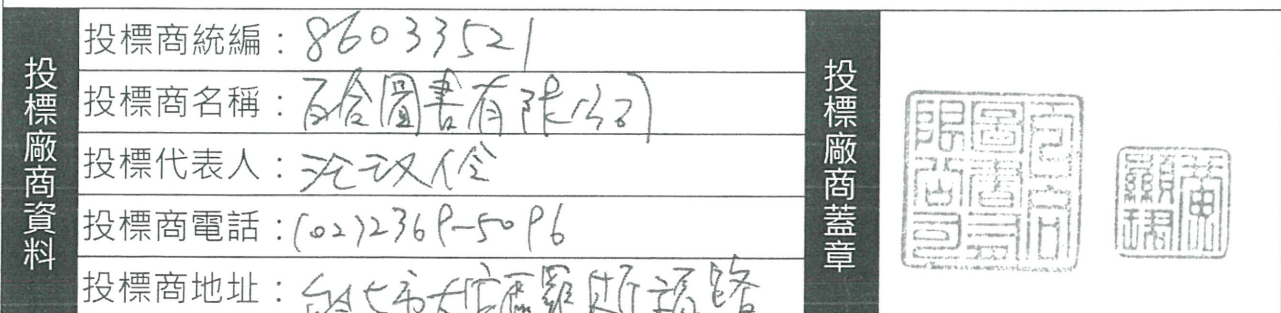 投標廠商資料
投標商統編：86033521
投標商名稱：百合圖書有限公司
投標代表人：沈政
投標商電話：(02)2369-5096
投標商地址：台北市大安區羅斯福路
投標廠商蓋章
百合圖書有限公司
黃顯